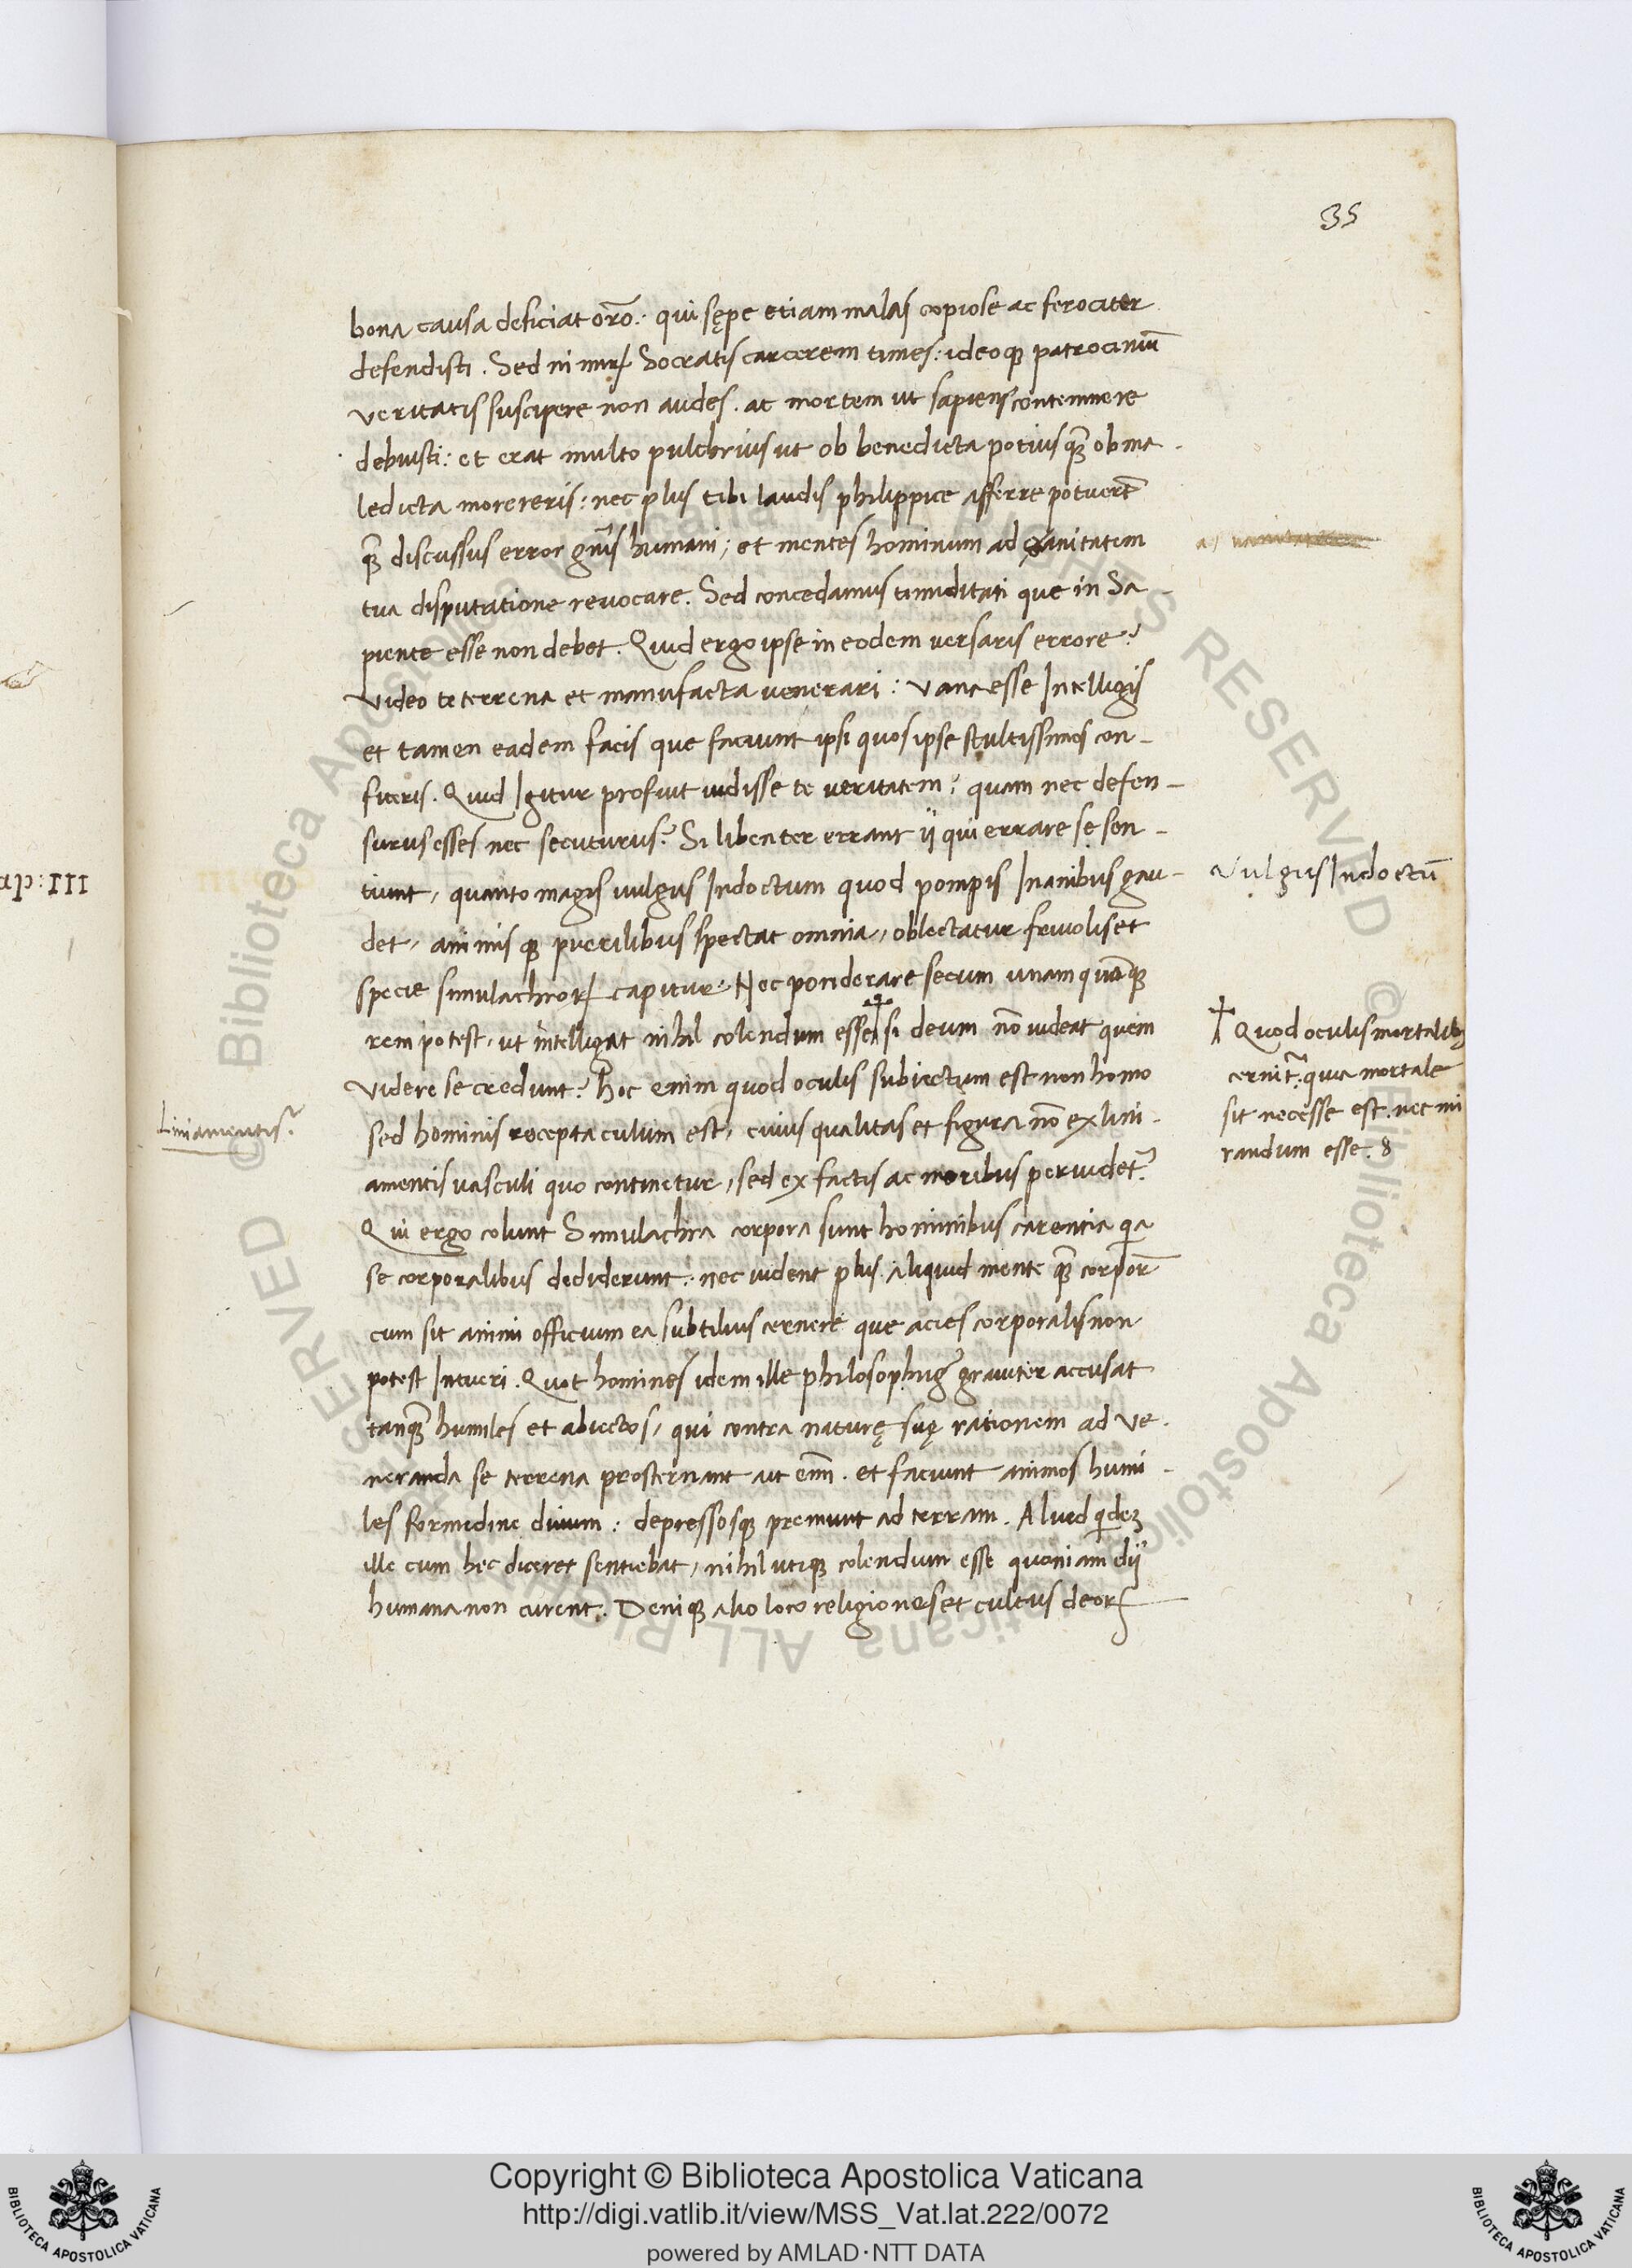 35
bona causa deficiat oro̅: qui sępe etiam malas copiose ac ferociter
defendisti. Sed ni mirꝝ Socratis carcerem times: ideoqꝫ patrociniu̅
veritatis suscipere non audes. at mortem ut sapiens contemnere
debuisti: et erat multo pulchrius ut ob benedicta potius qꝫ̅ ob ma-
ledicta morereris: nec plus tibi laudis philippice afferre potuert̅
qꝫ̅ discussus error gn̅is humani, et mentes hominum ad sanitatem
tua disputatione revocare. Sed concedamus timiditati que in Sa-
piente esse non debet. Quid ergo ipse in eodem versaris errore?
Video te terrena et manufacta venerari: vana esse Intelligis
et tamen eadem facis que faciunt ipsi quos ipse stultissimos con-
fiteris. Quid Igitur profuit vidisse te veritatem; quam nec defen-
surus esses nec secuturus? Si libenter errant ij qui errare se sen-
ap: III
tiunt, quanto magis vulgus Indoctum quod pompis Inanibus gau-
Vulgus Indoctu̅
det, animisqꝫ puerilibus spectat omnia, oblectatur frivolis et
specie simulachroꝝ capitur: Nec ponderare secum unam quaqꝫ̅
rem potest, ut intelligat nihil colendum esse † si deum no̅ videat quem
† Quod oculis mortalibꝫ
cernit̅: quia mortale
sit necesse est. nec mi
randum esse. 8
videre se credunt? Hoc enim quod oculis subiectum est non homo
Liniamentis?
sed hominis receptaculum est, cuius qualitas et figura no̅ ex lini-
amentis vasculi quo continetur, sed ex factis ac moribus pervidet̅.
Qui ergo colunt Simulachra corpora sunt hominibus carentia qa̅
se corporalibus dediderunt: nec vident plus aliquid mente qꝫ̅ corpor̅
cum sit animi officium ea subtilius cernere que acies corporalis non
potest Intueri. Quot homines idem ille philosophus graviter accusat
tanqꝫ̅ humiles et abiectos, qui contra naturę suę rationem ad ve-
neranda se terrena prosternant ut en̅m. et faciunt animos humi-
les formidine divum: depressosqꝫ premunt ad terram. Aliud qidez
ille cum hec diceret sentiebat, nihil utiqꝫ colendum esse quoniam dij
humana non curent. Deniqꝫ alio loco religiones et cultus deoꝝ
Copyright © Biblioteca Apostolica Vaticana
http://digi.vatlib.it/view/MSS_Vat.lat.222/0072
powered by AMLAD·NTT DATA
BIBLIOTECA APOSTOLICA VATICANA
BIBLIOTECA APOSTOLICA VATICANA